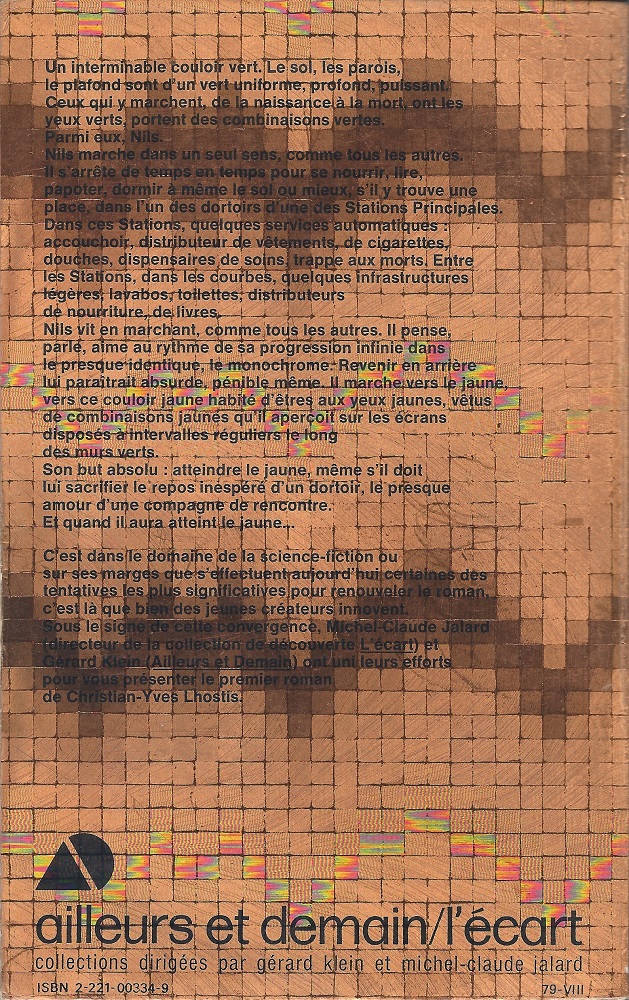 Un interminable couloir vert. Le sol, les parois,
le plafond sont d'un vert uniforme, profond, puissant.
Ceux qui y marchent, de la naissance à la mort, ont les
yeux verts, portent des combinaisons vertes.
Parmi eux, Nils.
Nils marche dans un seul sens, comme tous les autres.
Il s'arrête de temps en temps pour se nourrir, lire,
papoter, dormir à même le sol ou mieux, s'il y trouve une
place, dans l'un des dortoirs d'une des Stations Principales.
Dans ces Stations, quelques services automatiques :
accouchoir, distributeur de vêtements, de cigarettes,
douches, dispensaires de soins, trappe aux morts. Entre
les Stations, dans les courbes, quelques infrastructures
légères, lavabos, toilettes, distributeurs
de nourriture, de livres.
Nils vit en marchant, comme tous les autres. Il pense,
parle, aime au rythme de sa progression infinie dans
le presque identique, le monochrome. Revenir en arrière
lui paraîtrait absurde, pénible même. Il marche vers le jaune,
vers ce couloir jaune habité d'êtres aux yeux jaunes, vêtus
de combinaisons jaunes qu'il aperçoit sur les écrans
disposés à intervalles réguliers le long
des murs verts.
Son but absolu : atteindre le jaune, même s'il doit
lui sacrifier le repos inespéré d'un dortoir, le presque
amour d'une compagne de rencontre.
Et quand il aura atteint le jaune...
C'est dans le domaine de la science-fiction ou
sur ses marges que s'effectuent aujourd'hui certaines des
tentatives les plus significatives pour renouveler le roman,
c'est là que bien des jeunes créateurs innovent.
Sous le signe de cette convergence, Michel-Claude Jalard
(directeur de la collection de découverte L'écart) et
Gérard Klein (Ailleurs et Demain) ont uni leurs efforts
pour vous présenter le premier roman
de Christian-Yves Lhostis.
ailleurs et demain/l'écart
collections dirigées par gérard klein et michel-claude jalard
ISBN 2-221-00334-9 79-VIII